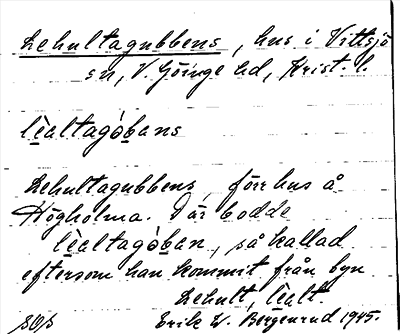 Lehultagubbens, hus i Vittsjö
sn, V. Göinge hd, Krist. l.
lèaltagòbans
Lehultagubbens, förr hus å
Högholma. Där bodde
lèaltagòban, så kallad
eftersom han kommit från byn
Lehult, lèalt.
Erik W. Bergenrud 1945.